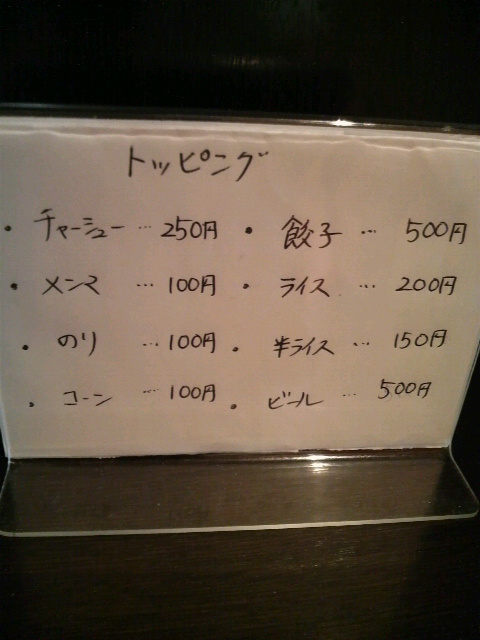 トッピング
・チャーシュー … 250円
・メンマ … 100円
・のり … 100円
・コーン … 100円
・餃子 … 500円
・ライス … 200円
・半ライス … 150円
・ビール … 500円